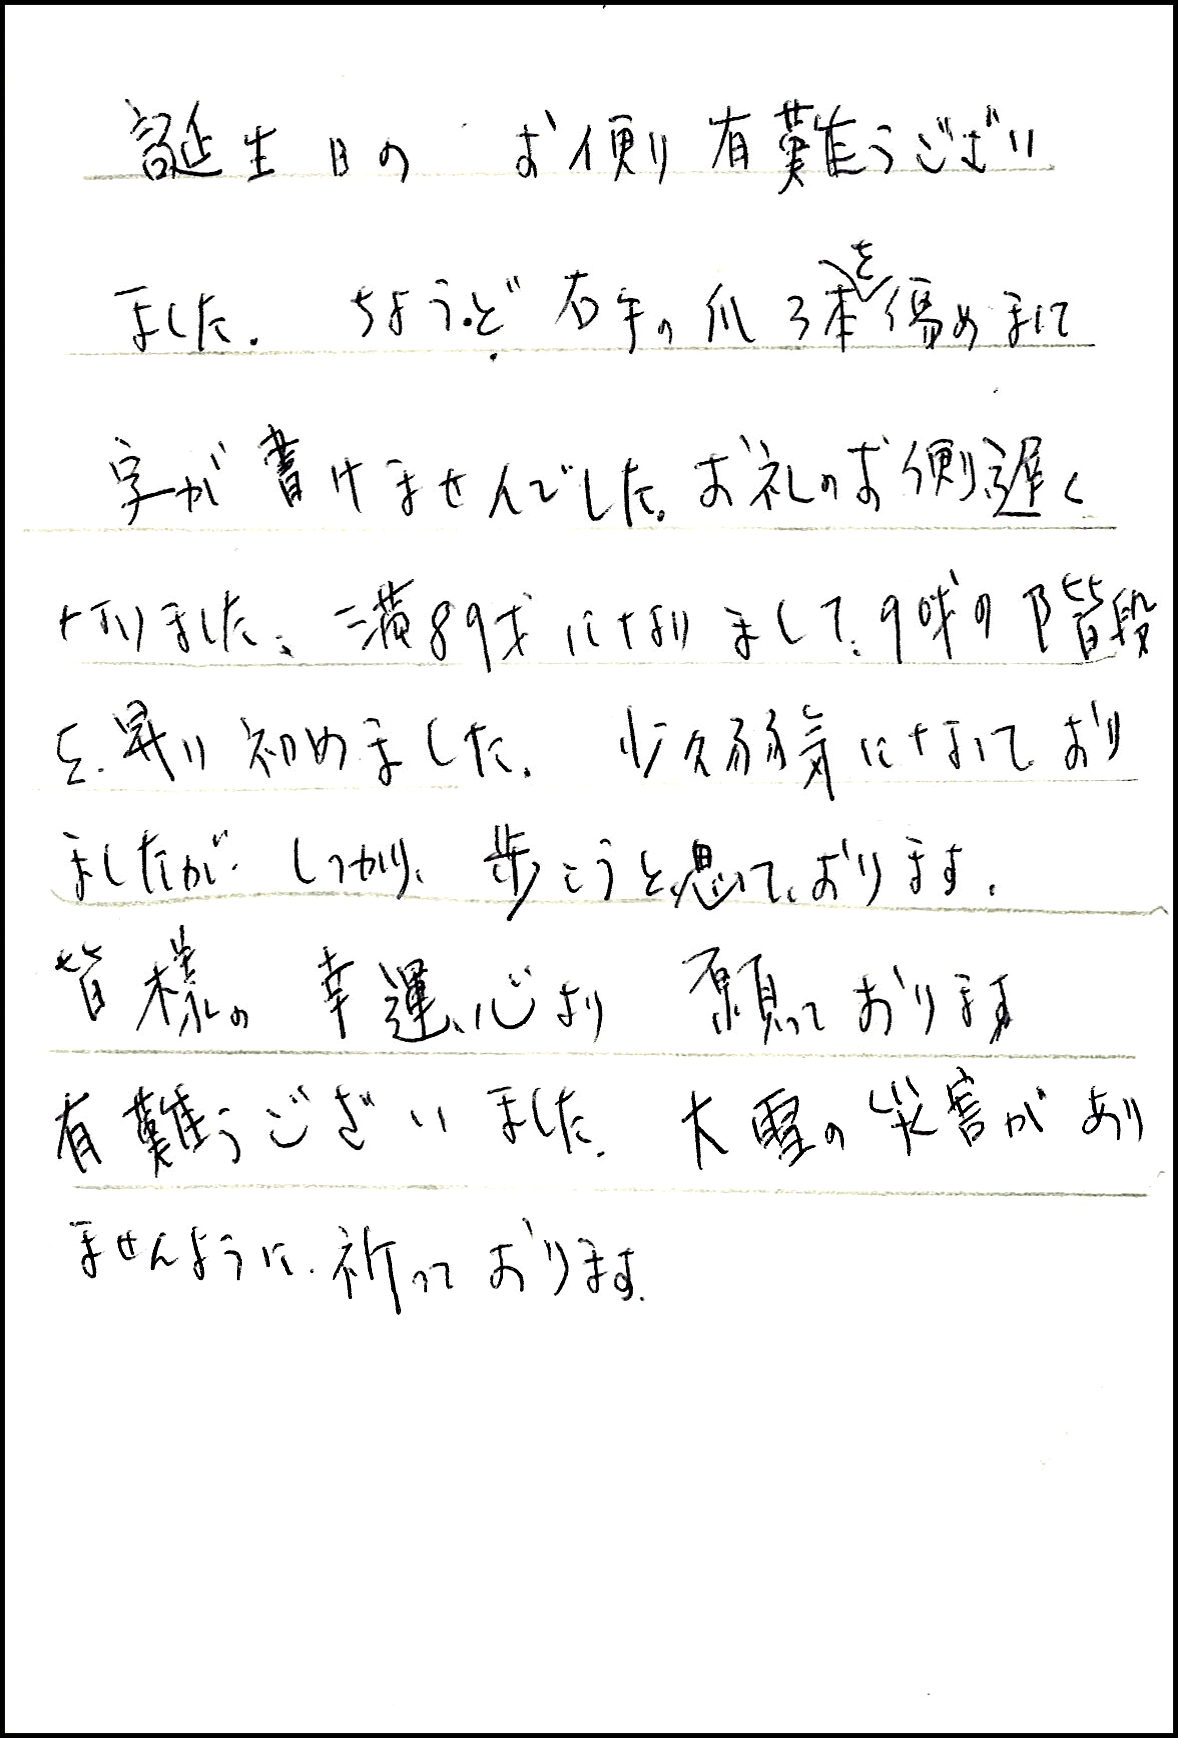 誕生日の お便り有難うござい
ました。 ちょうど右手の爪3本を傷めまして
字が書けませんでした。お礼のお便り遅く
なりました。満89才になりまして、90才の階段
を昇り初めました。 少々弱気になっており
ましたが、しっかり、歩こうと思っております。
皆様の 幸運、心より 願っております
有難うございました。 大雪の災害があり
ませんように、祈っております。